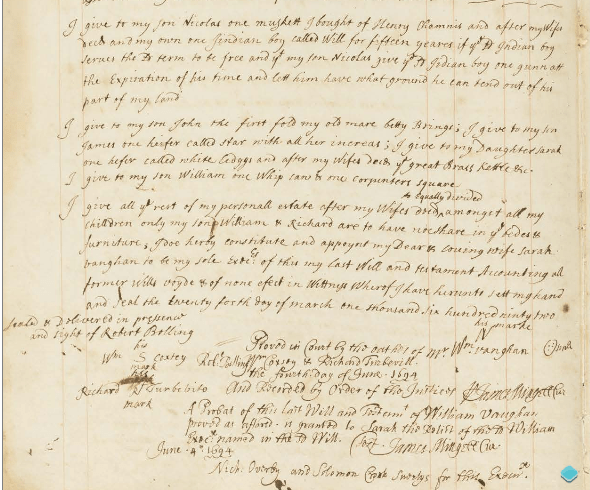 I give to my son Nicolas one muskett I bought of Henry Chamnis and after my Wifes
deces and my own one Jndian boy called Will for fifteen yeares if ye sd Indian boy
serves the sd term to be free and if my son Nicolas give ye sd Jndian boy one gunn att
the Expiration of his time and lett him have what ground he can tend out of his
part of my land
I give to my son John the first fold my old mare betty Brings; I give to my son
James one heifer called star with all her increas; I give to my Daughter Sarah
one hefer called white and after my Wifes Deces ye great Brass Kettle &c
I give to my son William one Whip saw & one Carpunters square
to equally divided
I give all ye rest of my personall estate after my Wifes Deces amongst all my
Children only my sons William & Richard are to have noe share in ye beds &
furniture, I doe herby constitute and appoynt my Dear & loving wife Sarah
Vaughan to be my sole Exec of this my last Will and testament Accounting all
former Wills voyde & of none efect in Wittness Wherof I have herunto sett my hand
and Seal the twenty forth Day of march one thousand six hundred ninty two
Seale & Delivered in presence
and sight of Robert Bolling
his marke
Wm Vaughan
his
Wm S Coxsey
mark
Proved in Court by the oathes of mr
Wm Coxsey & Richard
the fourth Day of June 1694
Richard Turbebito And Recorded by Order of the Justices James Minge Cl Cur
mark
A Probat of this last Will and Testemt of William Vaughan
proved as afforsd is granted to Sarah the Relist of the sd William
Exec named in the sd Will. Test James Minge Cl Cur
June 4th 1694
Nich: Overby and Solomon Crook Suertys for this Execur.